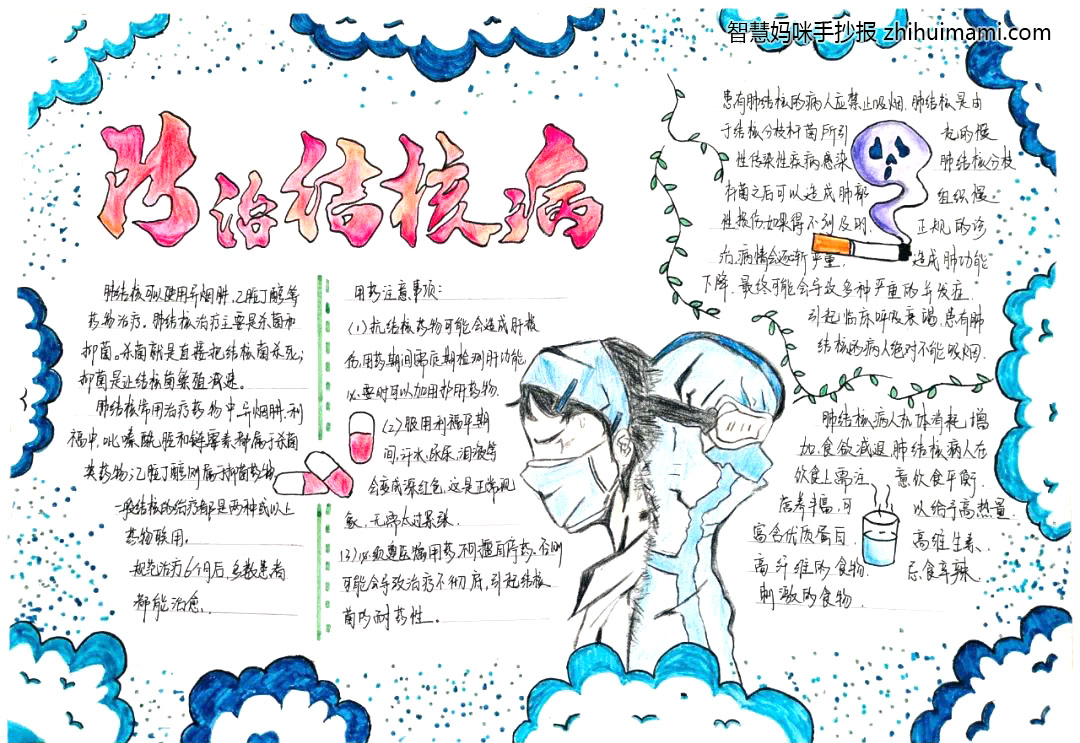 智慧妈咪手抄报 zhihuimami.com
防治结核病
肺结核可以使用异烟肼、乙胺丁醇等
药物治疗。肺结核治疗主要是杀菌和
抑菌。杀菌就是直接把结核菌杀死；
抑菌是让结核菌繁殖减速。
肺结核常用治疗药物中异烟肼、利
福平、吡嗪酰胺和链霉素都属于杀菌
类药物；乙胺丁醇则属于抑菌药物
一般结核的治疗都是两种或以上
药物联用。
规范治疗6个月后，多数患者
都能治愈。
用药注意事项：
(1)抗结核药物可能会造成肝损
伤，用药期间需定期检测肝功能，
必要时可以加用护肝药物。
(2)服用利福平期
间，汗水、尿尿、泪液等
会变成深红色，这是正常现
象，无需太过紧张。
(3)必须遵医嘱用药，不擅自停药，否则
可能会导致治疗不彻底，引起结核
菌的耐药性。
患有肺结核的病人应禁止吸烟，肺结核是由
于结核分枝杆菌所引 起的慢
性传染性疾病感染 肺结核分枝
杆菌之后可以造成肺部 组织慢
性损伤如果得不到及时 正规的诊
治，病情会逐渐严重， 造成肺功能
下降，最终可能会导致多种严重的并发症
引起临床呼吸衰竭，患有肺
结核的病人绝对不能吸烟。
肺结核病人机体消耗增
加，食欲减退，肺结核病人在
饮食上需注 意饮食平衡，
营养丰富，可 以给予高热量
富含优质蛋白 高维生素
高纤维的食物， 忌食辛辣
刺激的食物